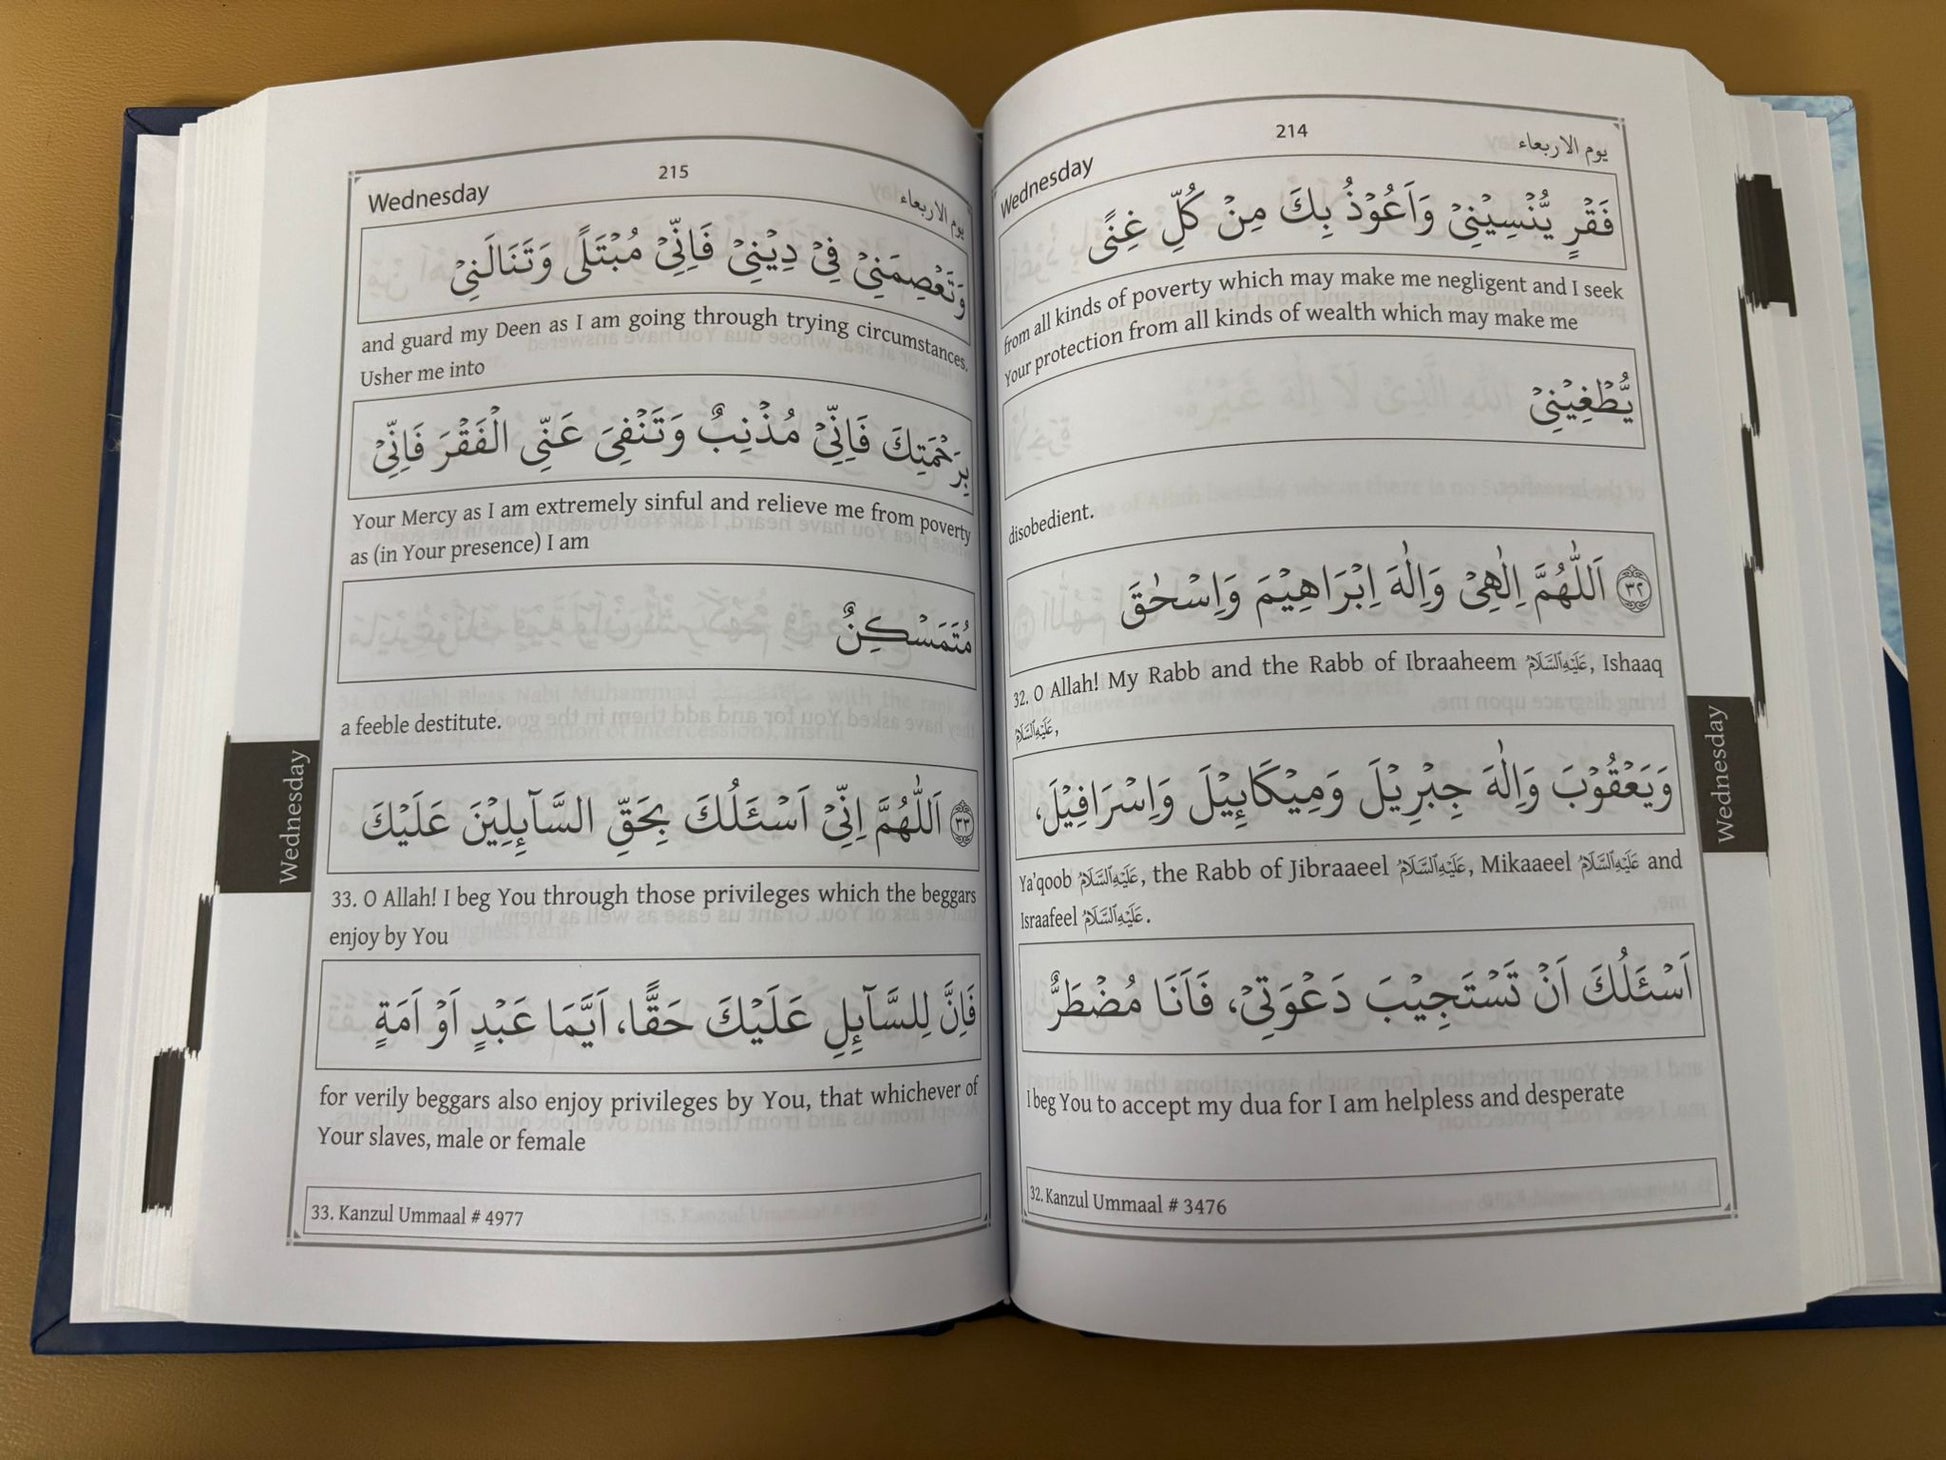 Wednesday
214
يوم الاربعاء
فَقْرٍ يُّنْسِيْنِيْ وَاَعُوْذُ بِكَ مِنْ كُلِّ غِنًى
from all kinds of poverty which may make me negligent and I seek
Your protection from all kinds of wealth which may make me
يُّطْغِيْنِيْ
disobedient.
٣٢ اَللّٰهُمَّ اِلٰهِيْ وَاِلٰهَ اِبْرَاهِيْمَ وَاِسْحٰقَ
32. O Allah! My Rabb and the Rabb of Ibraaheem عَلَيْهِ السَّلَامُ, Ishaaq
عَلَيْهِ السَّلَامُ,
وَيَعْقُوْبَ وَاِلٰهَ جِبْرِيْلَ وَمِيْكَايِٕيْلَ وَاِسْرَافِيْلَ،
Ya'qoob عَلَيْهِ السَّلَامُ, the Rabb of Jibraaeel عَلَيْهِ السَّلَامُ, Mikaaeel عَلَيْهِ السَّلَامُ and
Israafeel عَلَيْهِ السَّلَامُ.
اَسْئَلُكَ اَنْ تَسْتَجِيْبَ دَعْوَتِيْ، فَاَنَا مُضْطَرٌّ
I beg You to accept my dua for I am helpless and desperate
32. Kanzul Ummaal # 3476
Wednesday
Wednesday
215
يوم الاربعاء
وَتَعْصِمَنِيْ فِيْ دِيْنِيْ فَاِنِّيْ مُبْتَلًى وَتَنَالَنِيْ
and guard my Deen as I am going through trying circumstances.
Usher me into
بِرَحْمَتِكَ فَاِنِّيْ مُذْنِبٌ وَتَنْفِيَ عَنِّى الْفَقْرَ فَاِنِّيْ
Your Mercy as I am extremely sinful and relieve me from poverty
as (in Your presence) I am
مُتَمَسْكِنٌ
a feeble destitute.
٣٣ اَللّٰهُمَّ اِنِّيْ اَسْئَلُكَ بِحَقِّ السَّآيِٕلِيْنَ عَلَيْكَ
33. O Allah! I beg You through those privileges which the beggars
enjoy by You
فَاِنَّ لِلسَّآيِٕلِ عَلَيْكَ حَقًّا، اَيَّمَا عَبْدٍ اَوْ اَمَةٍ
for verily beggars also enjoy privileges by You, that whichever of
Your slaves, male or female
33. Kanzul Ummaal # 4977
Wednesday